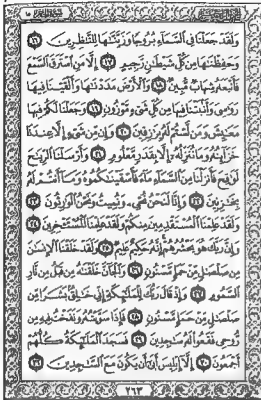 وَلَقَدْ جَعَلْنَا فِي ٱلسَّمَآءِ بُرُوجًا وَزَيَّنَّـٰهَا لِلنَّـٰظِرِينَ ١٦
وَحَفِظْنَـٰهَا مِن كُلِّ شَيْطَـٰنٍ رَّجِيمٍ ١٧ إِلَّا مَنِ ٱسْتَرَقَ ٱلسَّمْعَ
فَأَتْبَعَهُۥ شِهَابٌ مُّبِينٌ ١٨ وَٱلْأَرْضَ مَدَدْنَـٰهَا وَأَلْقَيْنَا فِيهَا
رَوَٰسِيَ وَأَنۢبَتْنَا فِيهَا مِن كُلِّ شَيْءٍ مَّوْزُونٍ ١٩ وَجَعَلْنَا لَكُمْ فِيهَا
مَعَـٰيِشَ وَمَن لَّسْتُمْ لَهُۥ بِرَٰزِقِينَ ٢٠ وَإِن مِّن شَيْءٍ إِلَّا عِندَنَا
خَزَآئِنُهُۥ وَمَا نُنَزِّلُهُۥٓ إِلَّا بِقَدَرٍ مَّعْلُومٍ ٢١ وَأَرْسَلْنَا ٱلرِّيَـٰحَ
لَوَٰقِحَ فَأَنزَلْنَا مِنَ ٱلسَّمَآءِ مَآءً فَأَسْقَيْنَـٰكُمُوهُ وَمَآ أَنتُمْ لَهُۥ
بِخَـٰزِنِينَ ٢٢ وَإِنَّا لَنَحْنُ نُحْيِۦ وَنُمِيتُ وَنَحْنُ ٱلْوَٰرِثُونَ ٢٣
وَلَقَدْ عَلِمْنَا ٱلْمُسْتَقْدِمِينَ مِنكُمْ وَلَقَدْ عَلِمْنَا ٱلْمُسْتَـْٔخِرِينَ ٢٤
وَإِنَّ رَبَّكَ هُوَ يَحْشُرُهُمْ إِنَّهُۥ حَكِيمٌ عَلِيمٌ ٢٥ وَلَقَدْ خَلَقْنَا ٱلْإِنسَـٰنَ
مِن صَلْصَـٰلٍ مِّنْ حَمَإٍ مَّسْنُونٍ ٢٦ وَٱلْجَآنَّ خَلَقْنَـٰهُ مِن قَبْلُ مِن نَّارِ
ٱلسَّمُومِ ٢٧ وَإِذْ قَالَ رَبُّكَ لِلْمَلَـٰٓئِكَةِ إِنِّي خَـٰلِقٌۢ بَشَرًا مِّن
صَلْصَـٰلٍ مِّنْ حَمَإٍ مَّسْنُونٍ ٢٨ فَإِذَا سَوَّيْتُهُۥ وَنَفَخْتُ فِيهِ مِن
رُّوحِي فَقَعُوا۟ لَهُۥ سَـٰجِدِينَ ٢٩ فَسَجَدَ ٱلْمَلَـٰٓئِكَةُ كُلُّهُمْ
أَجْمَعُونَ ٣٠ إِلَّآ إِبْلِيسَ أَبَىٰٓ أَن يَكُونَ مَعَ ٱلسَّـٰجِدِينَ ٣١
٢٦٣